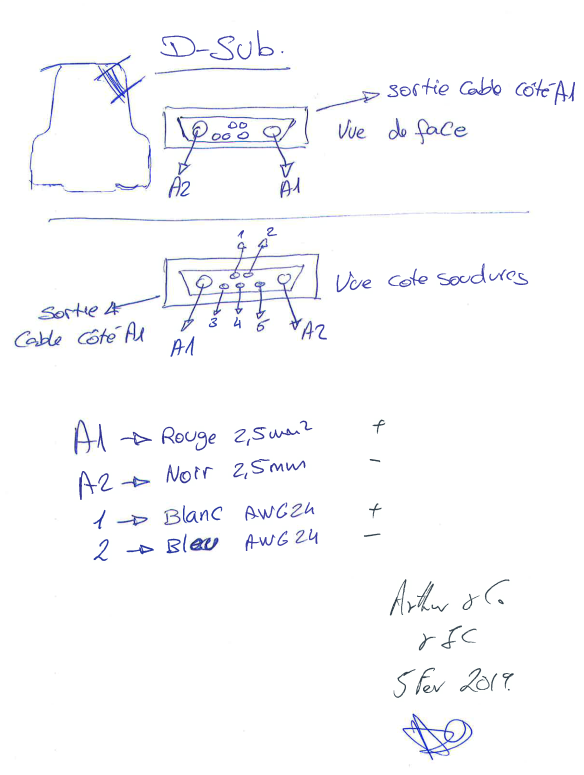 D-Sub.
Sortie Cable côté A1
Vue de face
A2 A1
1 2
Vue cote soudures
Sortie
Cable côté A1
3 4 5
A1 A2
A1 → Rouge 2,5mm² +
A2 → Noir 2,5mm -
1 → Blanc AWG24 +
2 → Bleu AWG24 -
Arthur & Co.
& JC
5 Fev 2019.